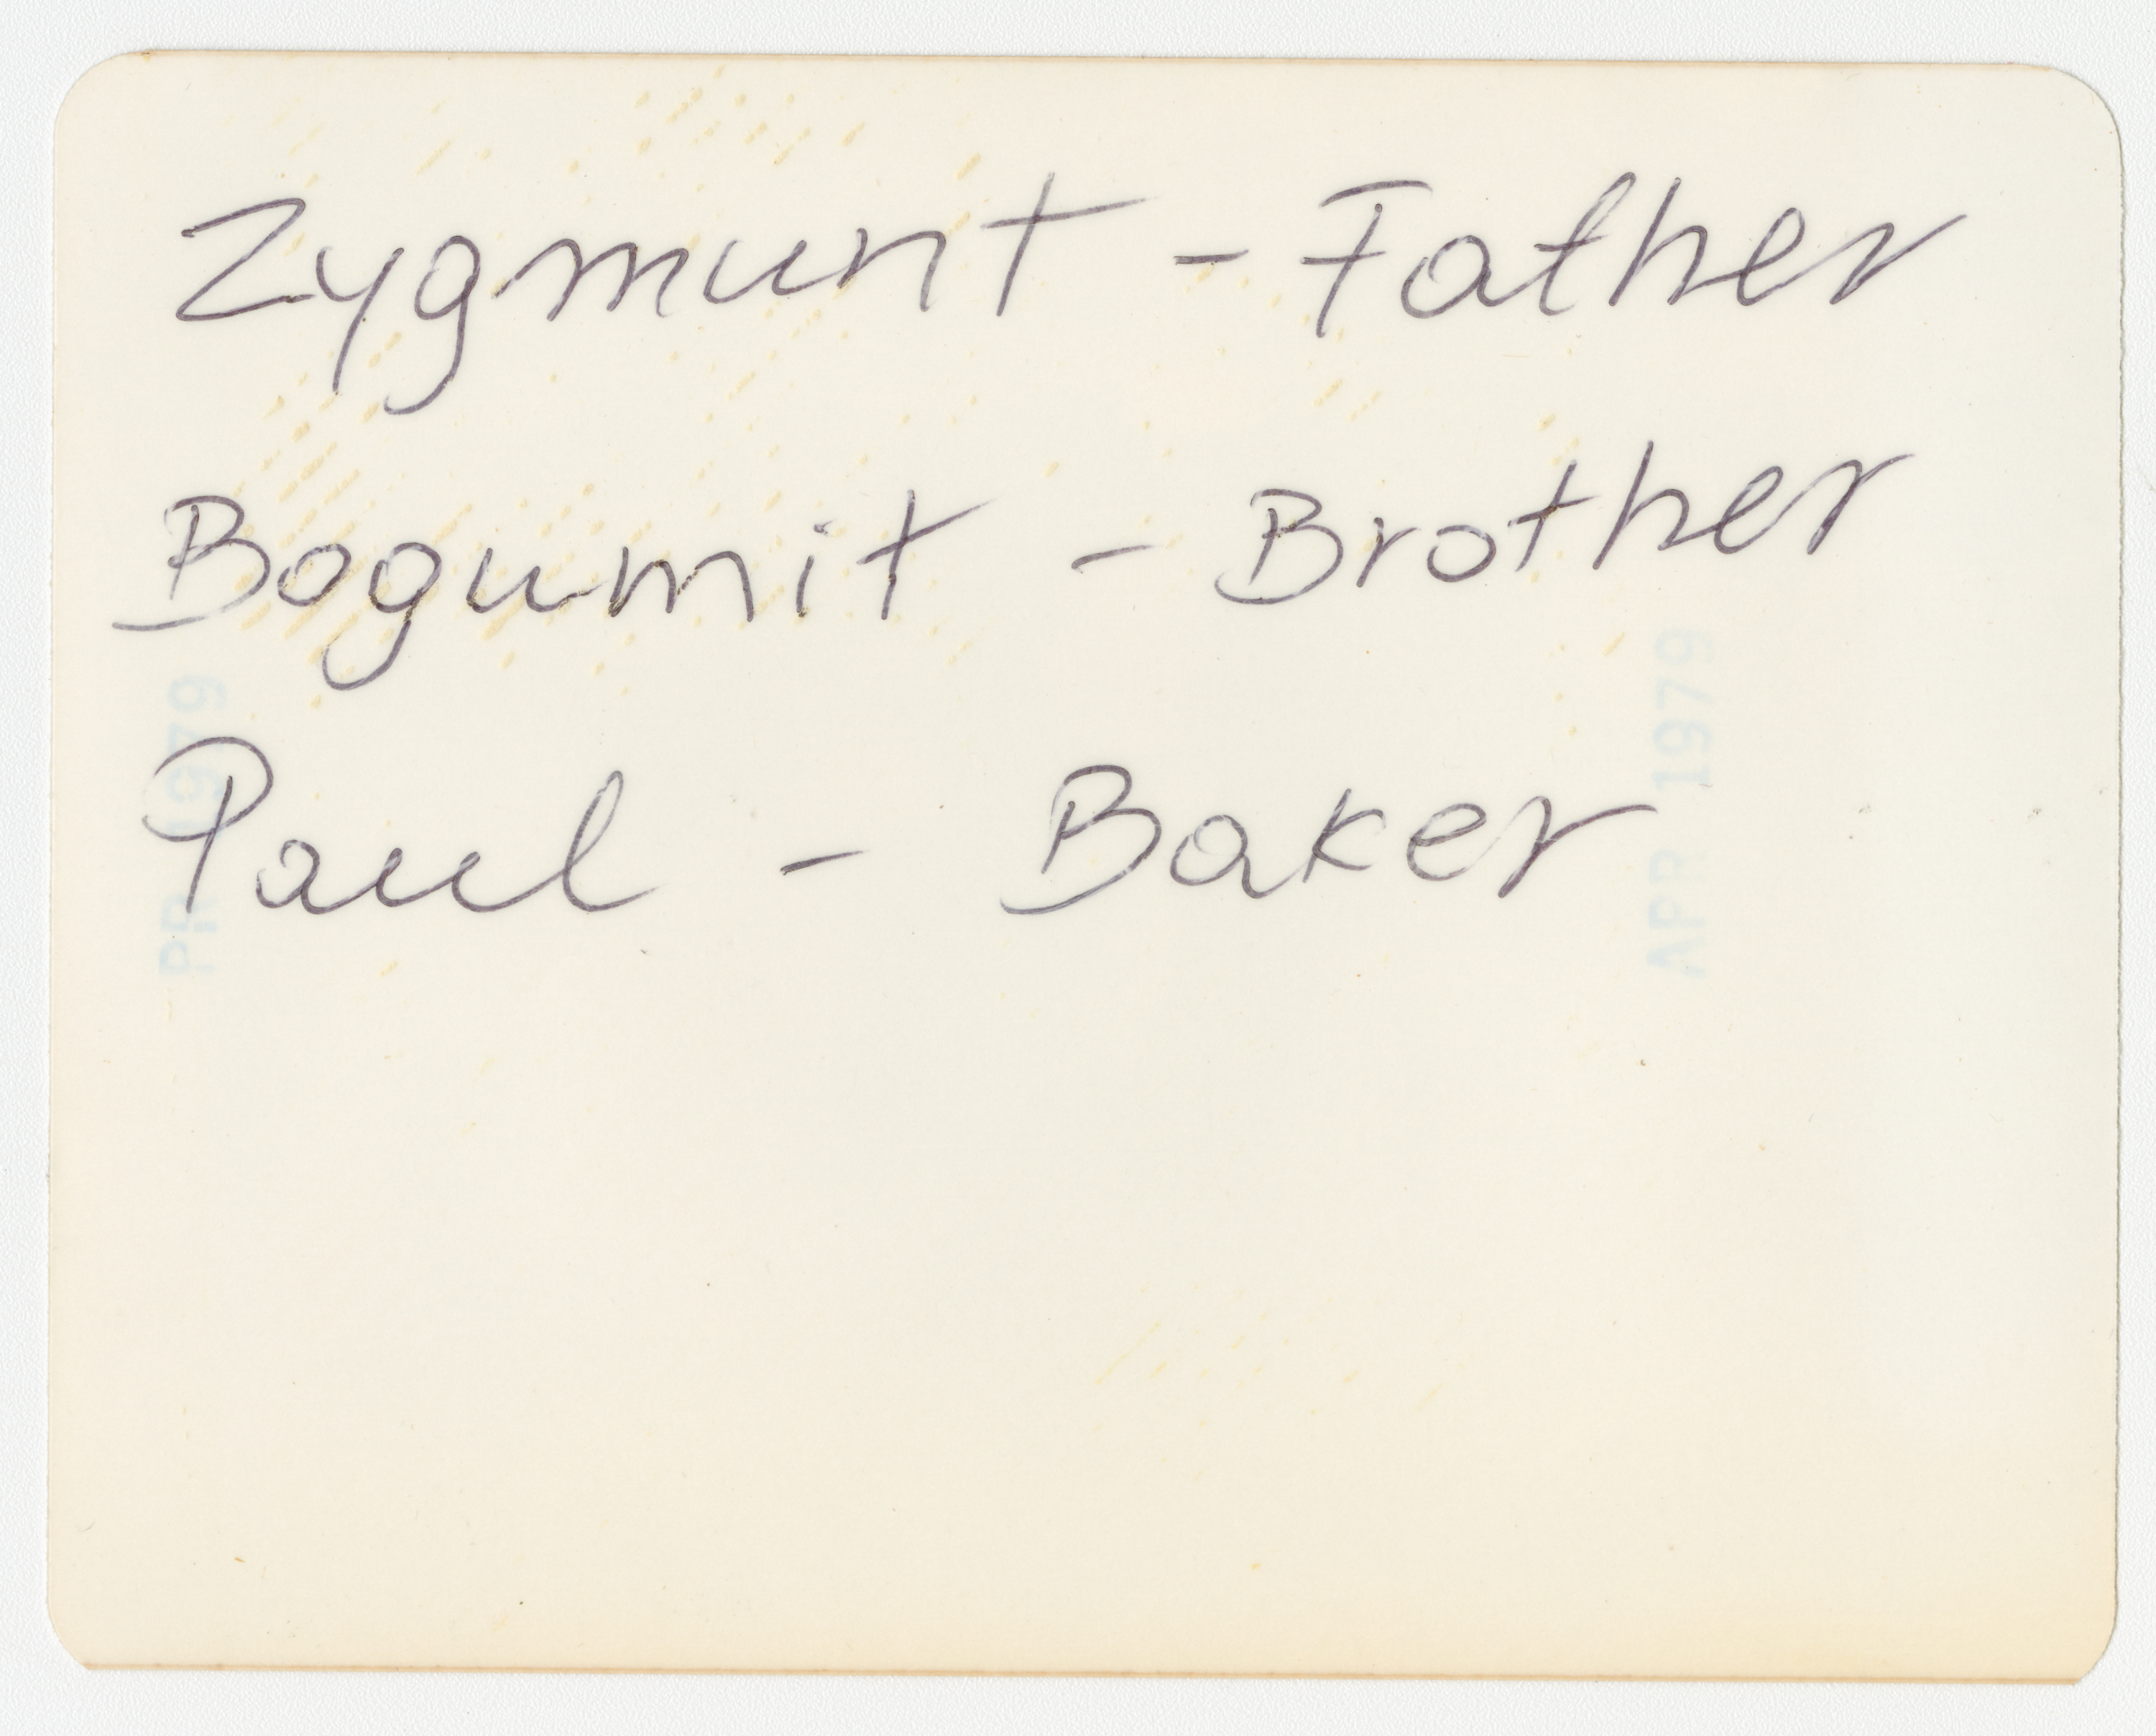 Zygmunt - Father
Bogumit - Brother
Paul - Baker
PR 1979
APR 1979